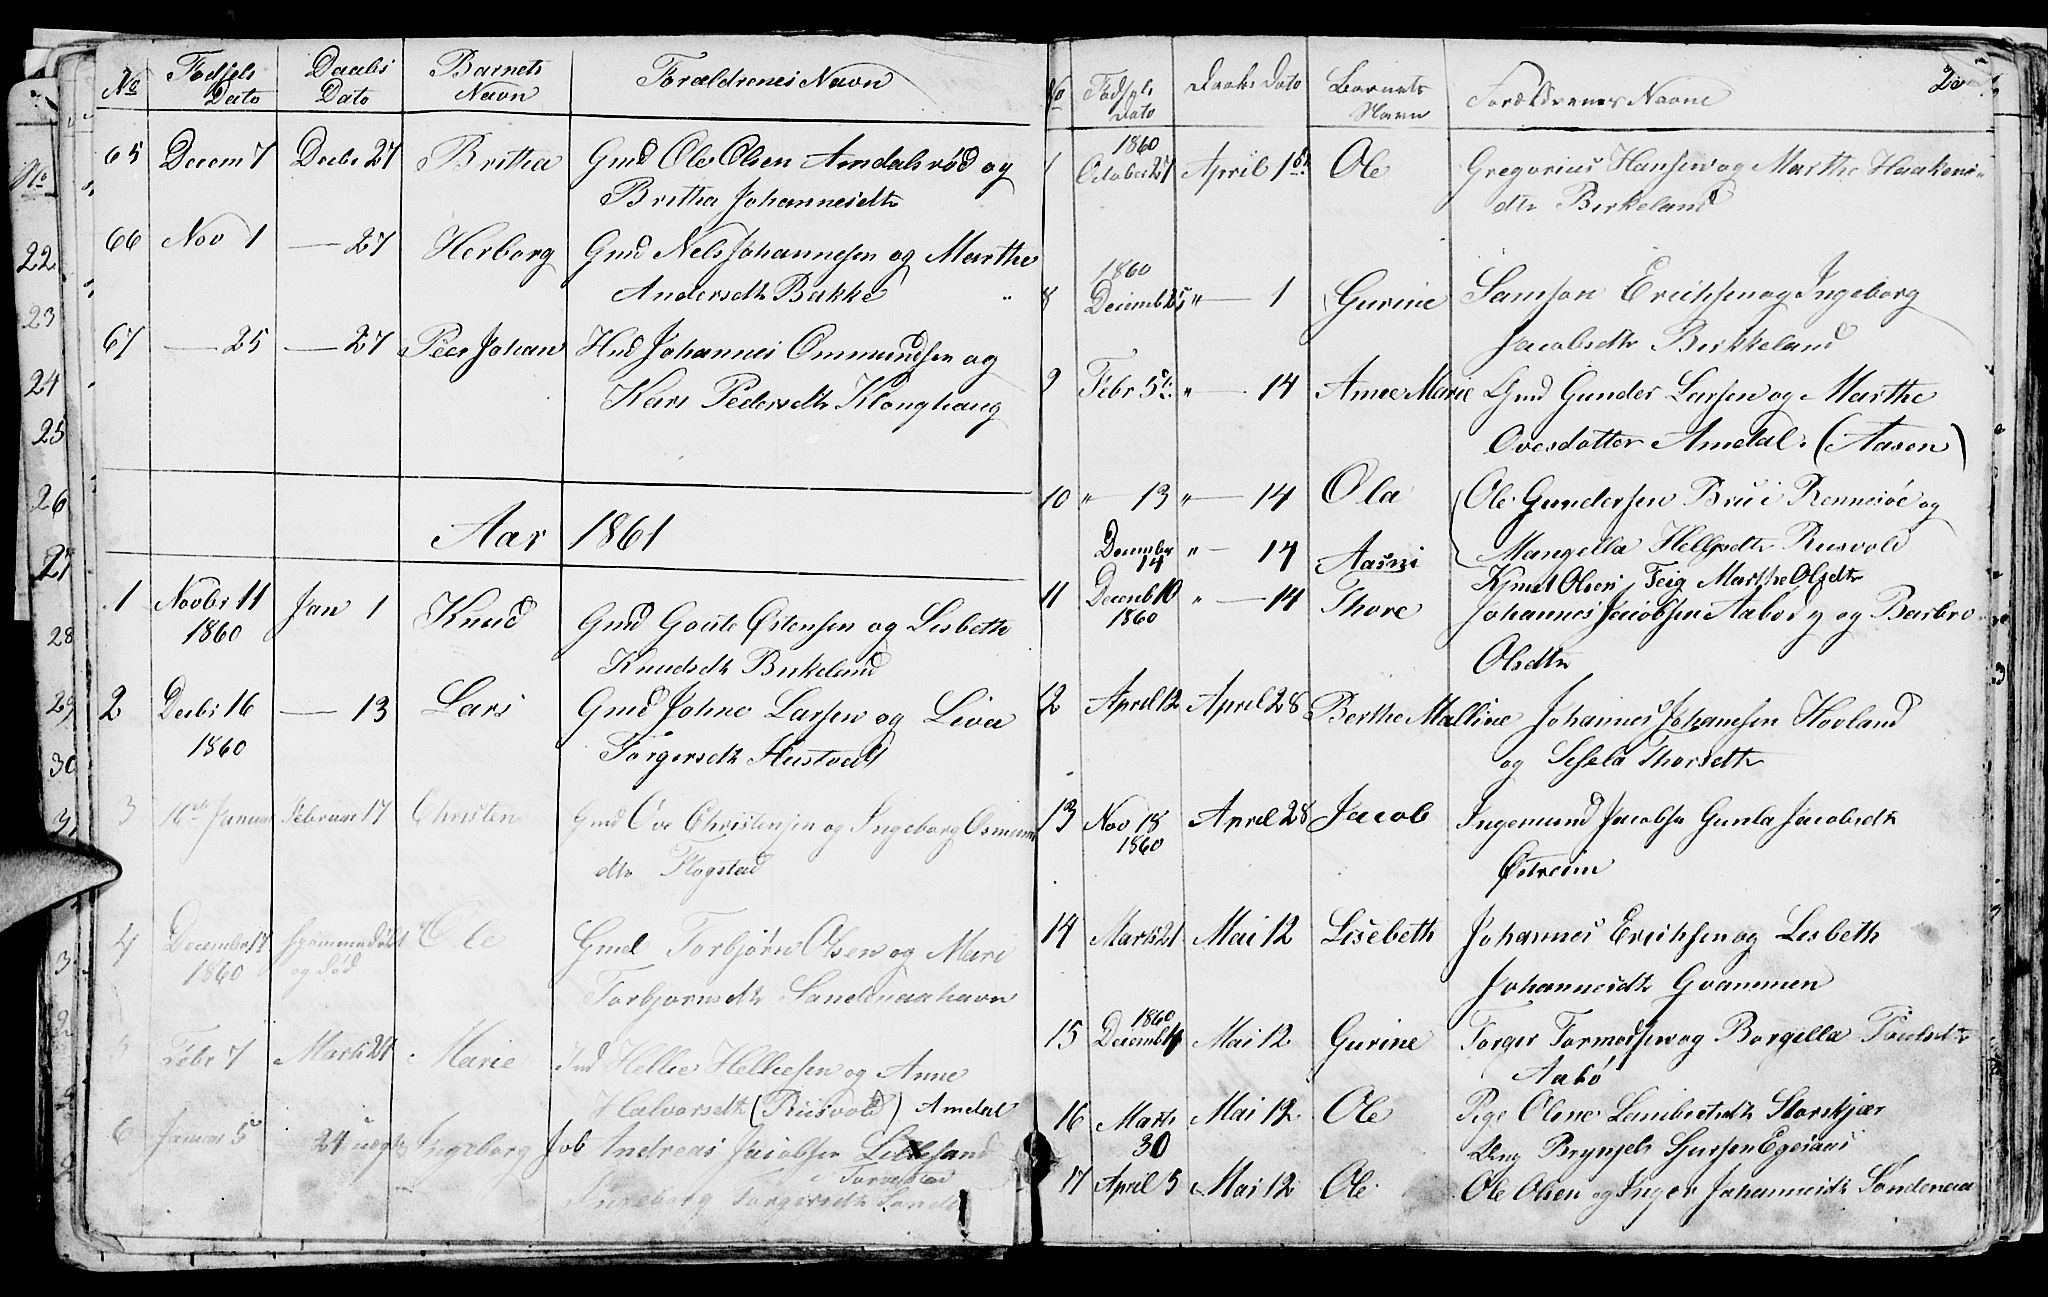 No Fødsels Dato Daabs Dato Barnets Navn Forældrenes Navn
65 Decem 7 Decbr 27 Britha Gmd Ole Olsen Amdalsrød og
Britha Johannesdtr
66 Nov 1 — 27 Herborg Gmd Nels Johannesen og Marthe
Andersdtr Bakke
67 — 25 — 27 Peer Johan Hmd Johannes Ommundsen og
Kari Pedersdtr Klonghaug
Aar 1861
1 Novbr 11 Jan 1 Knud Gmd Goute Østensen og Lisbeth
1860 Knudsdtr Birkeland
2 Decbr 16 — 13 Lars Gmd Johne Larsen og Liva
1860 Torgersdtr Hustvedt
3 16de Januar Februar 17 Christen Gmd Ove Christensen og Ingeborg Osmund
dtr Flogstad
4 December 17 hjemmedøbt Ole Gmd Torbjørn Olsen og Mari
1860 og død Torbjørnsdtr Søndenaahavn
5 Febr 7 Marts 24 Marie Ind Hellie Helliesen og Anne
Halvorsdtr (Riisvold) Amdal
6 Januar 5 24 Ingeborg Job Andreas Jacobsen Lillesand
Torvestad
Ingeborg Torgersdtr
No Fødsels Dato Daabs Dato Barnets Navn Forældrenes Navne
1860
7 October 27 April 1st Ole Gregorius Hansen og Marthe Haakens-
dtr Birkeland
1860
8 Decemb 25 " — 1 Gurine Samson Erichsen og Ingeborg
Jacobsdtr Birkeland
9 Febr 5 " — 14 Anne Marie Gmd Gunder Larsen og Marthe
Ovesdatter Amdal (Aasen)
10 " 13 " — 14 Ola Ole Gundersen Bru i Rennesøe og
Mangella Helljesdtr Riisvold
December 14 " — 14 Knut Olsen Teig Marthe Olsdtr
11 Decemb 10 " — 14 Thore Johannes Jacobsen Aabø og Barbro
1860 Olsdtr
12 April 12 April 28 Berthe Malline Johannes Johannesen Hovland
og Sesela Thorsdtr
13 Nov 18 April 28 Jacob Ingemund Jacobsn Gunla Jacobsdtr
1860 Østreim
14 Marts 21 Mai 12 Lisebeth Johannes Erichsen og Lisbeth
Johannesdtr Gvammen
1860
15 Decemb Mai 12 Gurine Torger Tormodsen og Borgella
Aabø
16 Marts Mai 12 Ole Pige Olene Lambertsdtr Storskjær
30 Ung Brynjel Sjursen Egeraas
17 April 5 Mai 12 Ole Ole Olsen og Inger Johannesdtr Søndenaa
No
22
23
24
25
26
27
28
29
30